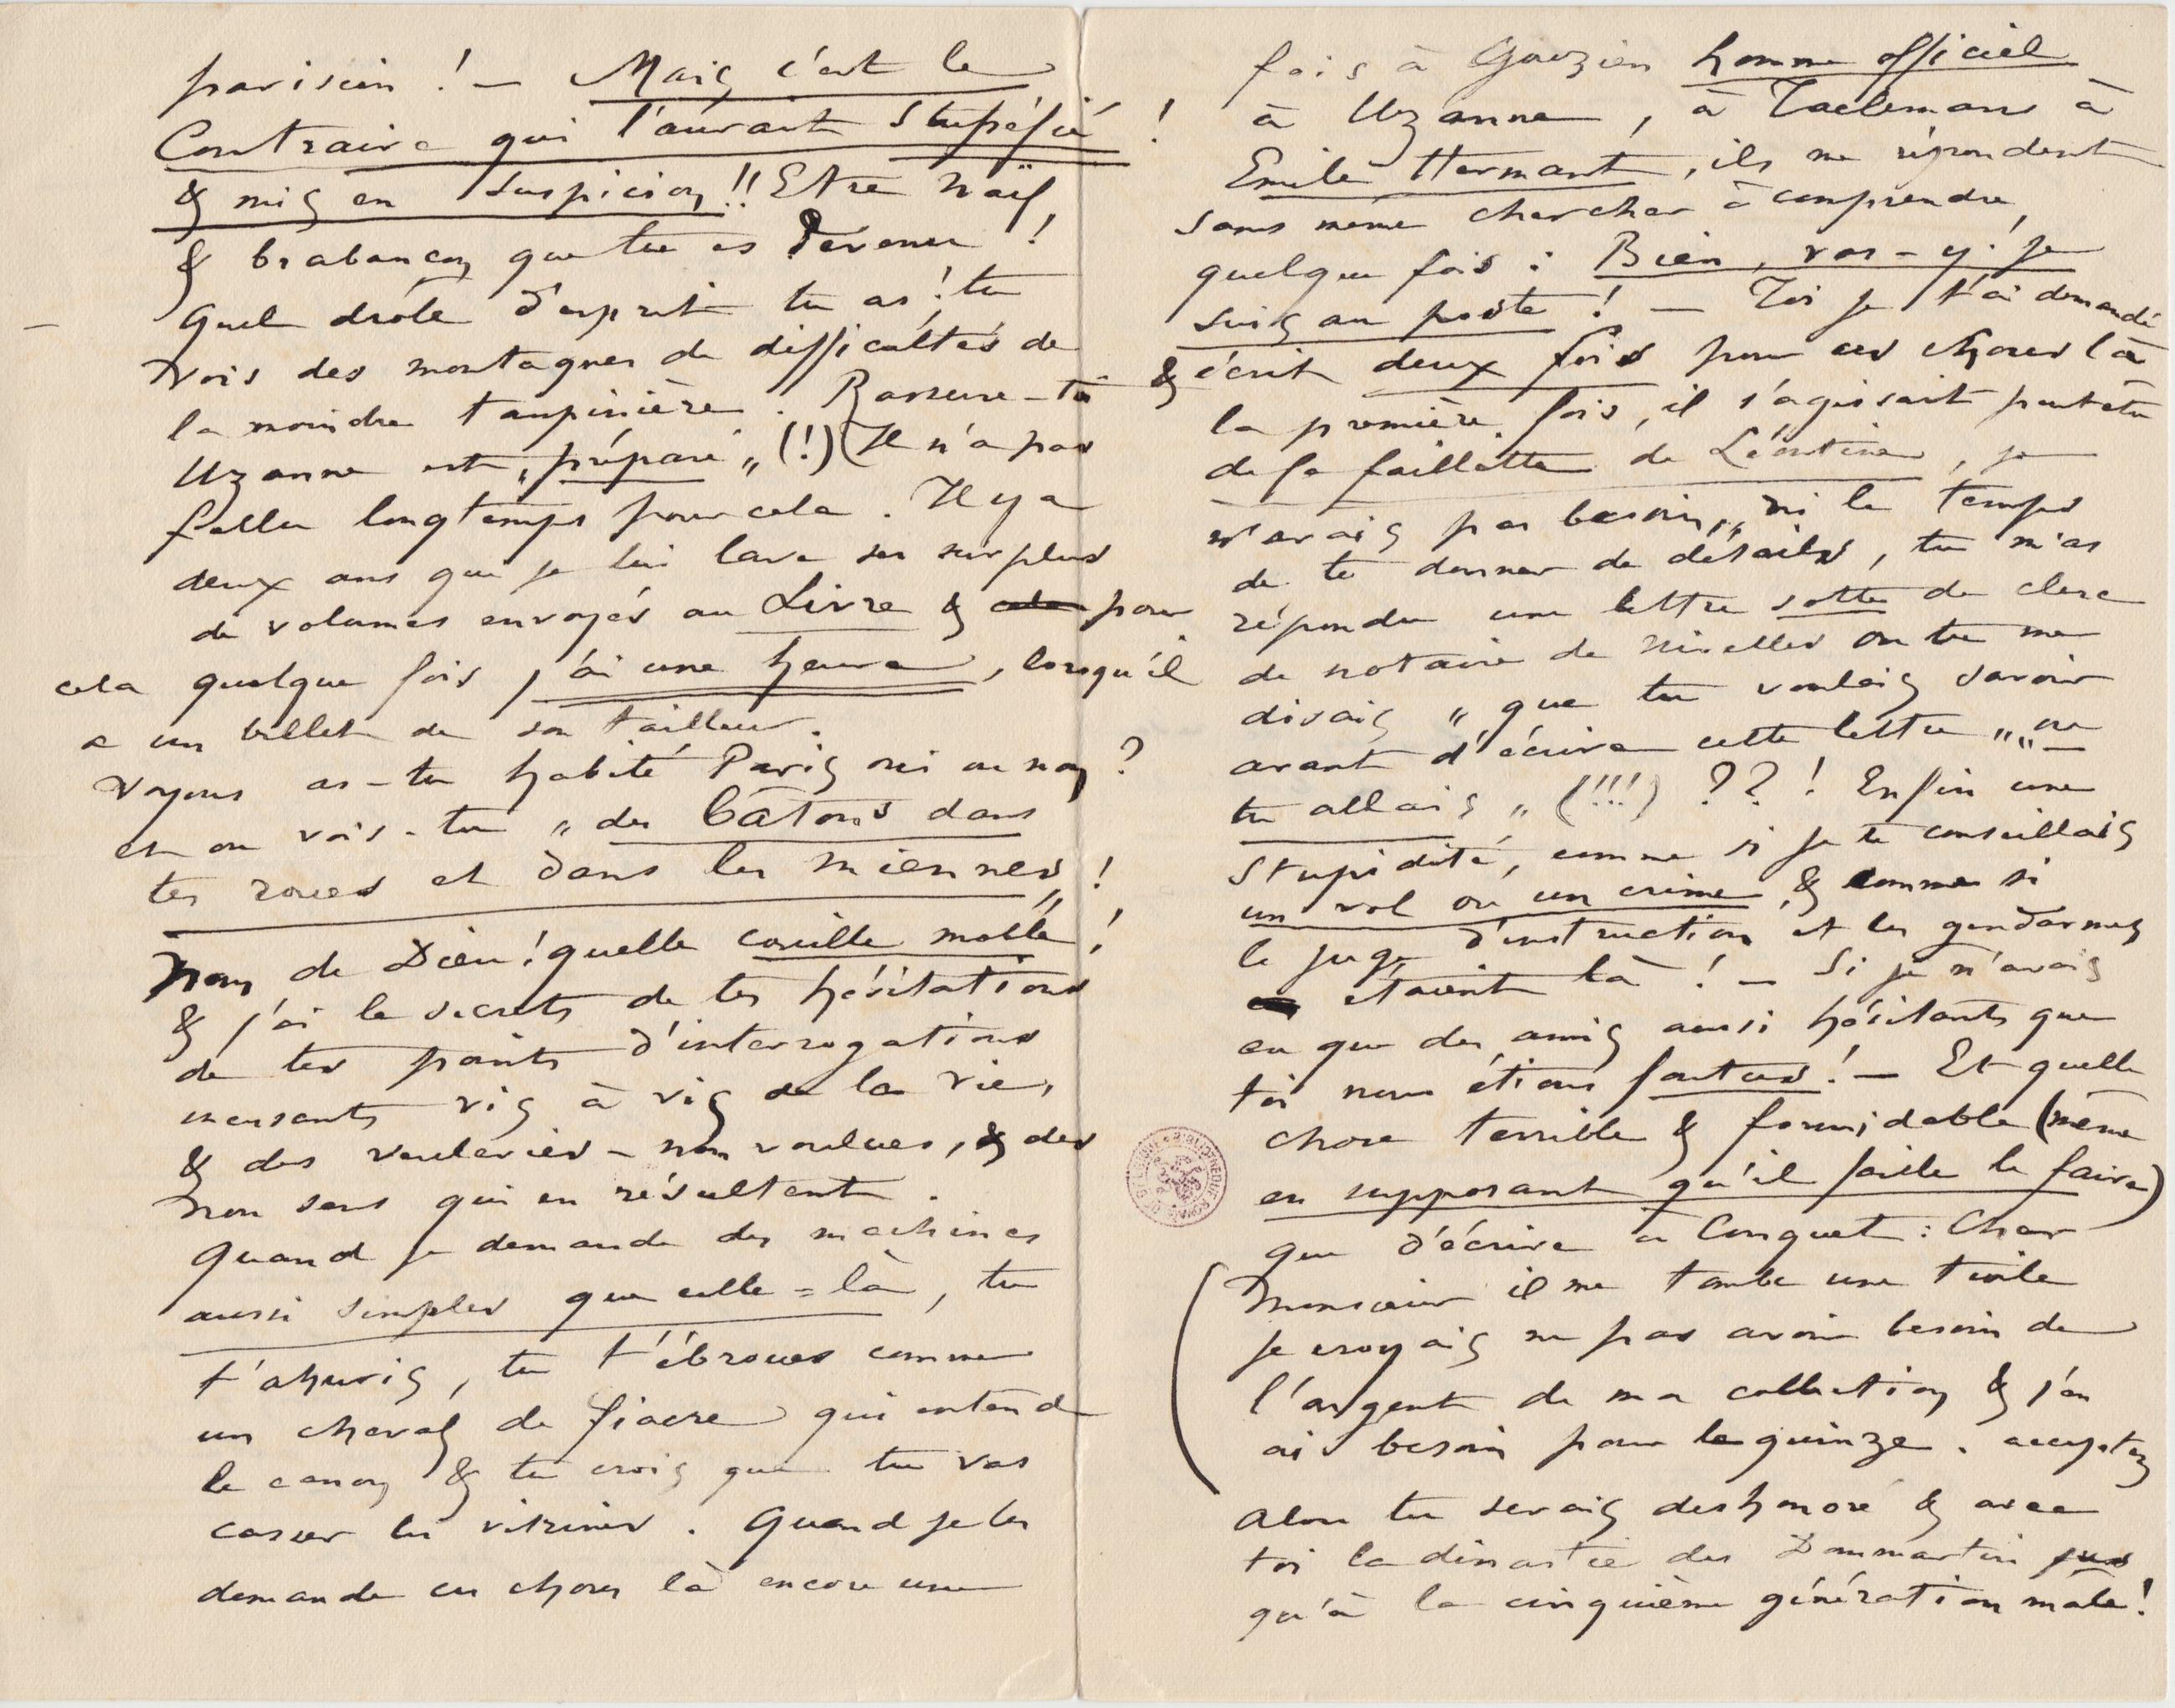 parisien ! — Mais c'est le
Contraire qui t'aurait stupéfié !
& mis en suspicion !! Etre naïf,
& brabançon que tu es devenu !
Quel drôle d'esprit tu as ! tu
vois des montagnes de difficultés de
la moindre taupinière. Rassure-toi
Uzanne est „préparé„ (!) (Il n'a pas
fallu longtemps pour cela. Il y a
deux ans que je lui lave ses surplus
de volumes envoyés au Livre & pour
cela quelque fois j'ai une heure, lorsqu'il
a un billet de son tailleur.
Voyons as-tu habité Paris oui ou non ?
et où vois-tu „des bâtons dans
tes roues et dans les miennes„ !
Nom de Dieu ! quelle couille molle !
& j'ai le secret de tes hésitations
de tes points d'interrogations
incessants vis à vis de la vie,
& des vouleries-non voulues, & des
non sens qui en résultent.
Quand je demande des machines
aussi simples que celle=là, tu
t'ahuris, tu t'ébroues comme
un cheval de fiacre qui entend
le canon & tu crois que tu vas
casser les vitrines. Quand je les
demande ces choses là encore une
fois à Gouzien homme officiel
à Uzanne, à Taelemans à
Emile Hermant, ils me répondent
sans même chercher à comprendre,
quelque fois : Bien, vas-y ! je
suis au poste ! — Toi je t'ai demandé
& écrit deux fois pour ces choses là
la première fois, il s'agissait peutetre
de la faillette de Léontine, je
n'avais pas besoin, ni le temps
de te donner de détails, tu m'as
répondu une lettre sotte de clerc
de notaire de Nivelles où tu me
disais „que tu voulais savoir
avant d'écrire cette lettre „„où
tu allais„ (!!!) ??! Enfin une
stupidité, comme si je te conseillais
un vol ou un crime & comme si
le juge d'instruction et les gendarmes
étaient là ! — Si je n'avais
eu que des amis aussi hésitants que
toi nous étions foutus ! — Et quelle
chose terrible & formidable (même
en supposant qu'il faille le faire)
que d'écrire à Conquet : Cher
Monsieur il me tombe une tuile
je croyais ne pas avoir besoin de
l'argent de ma collection & j'en
ai besoin pour le quinze. acceptez
Alors tu serais deshonoré & avec
toi la dinastie des Dommartin jus
qu'à la cinquième génération mâle !